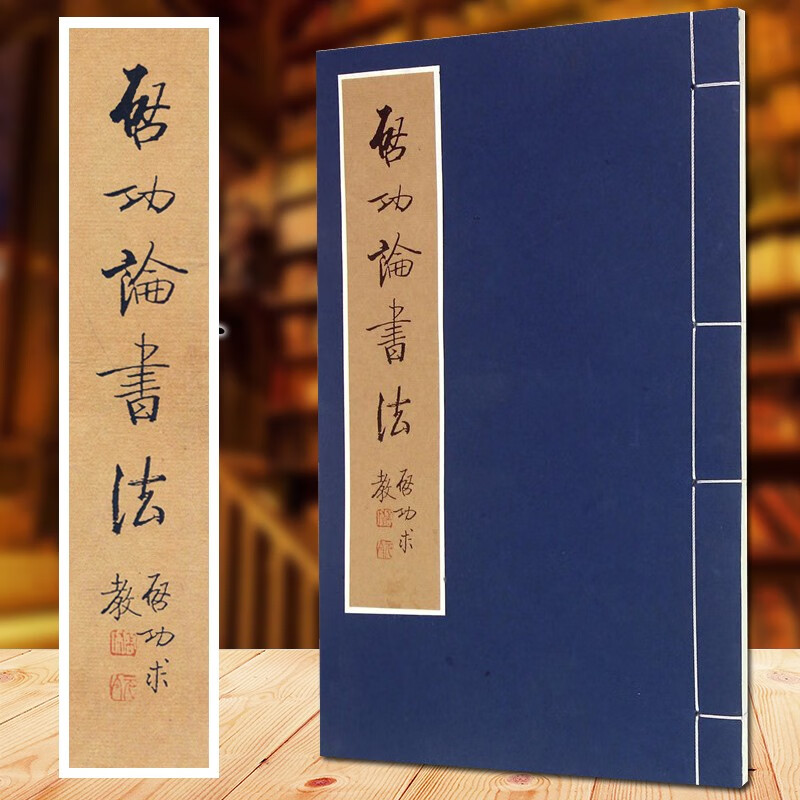 启功論書法
启功求
教
启功論書法
启功求
教